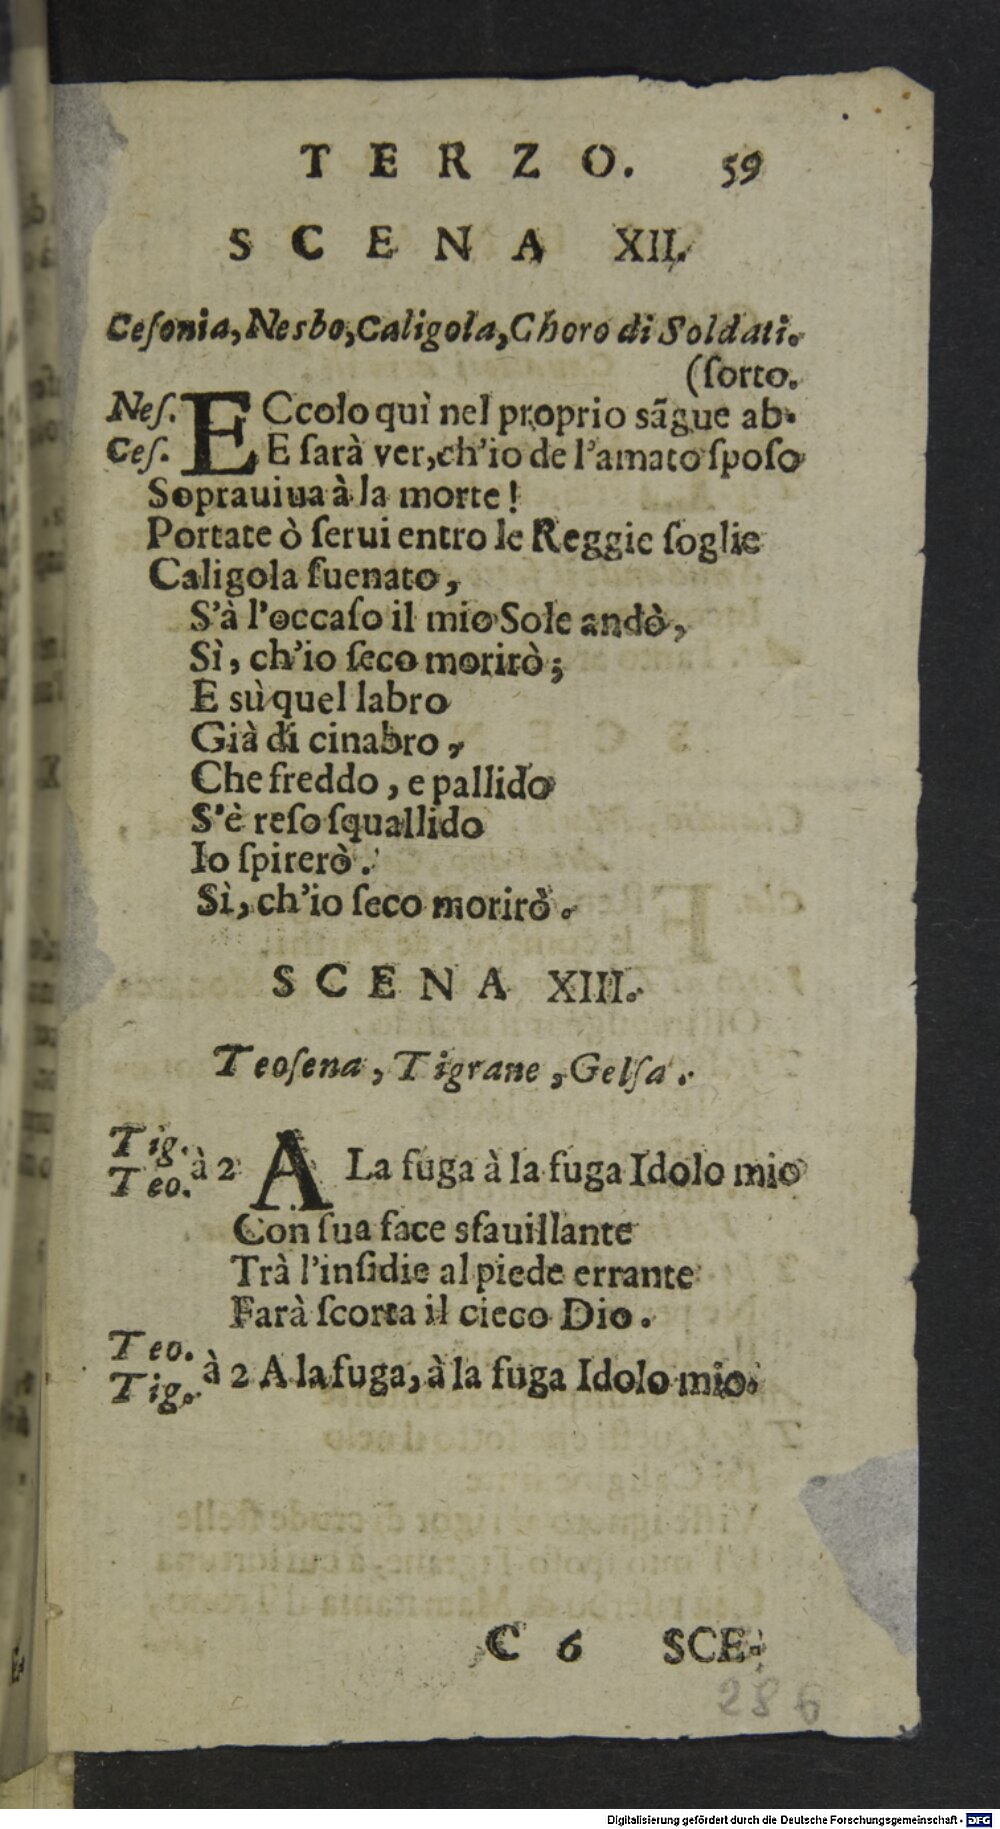 TERZO. 59
SCENA XII.
Ceſonia, Nesbo, Caligola, Choro di Soldati.
(ſorto.
Neſ. ECcolo quì nel proprio sãgue ab-
Ceſ. E ſarà ver, ch'io de l'amato ſpoſo
Soprauiua à la morte!
Portate ò ſerui entro le Reggie ſoglie
Caligola ſuenato,
S'à l'occaſo il mio Sole andò,
Sì, ch'io ſeco morirò;
E sù quel labro
Già di cinabro,
Che freddo, e pallido
S'è reſo ſquallido
Io ſpirerò.
Sì, ch'io ſeco morirò.
SCENA XIII.
Teoſena, Tigrane, Gelſa.
Tig.
Teo. à 2 A La fuga à la fuga Idolo mio
Con ſua face sfauillante
Trà l'inſidie al piede errante
Farà ſcorta il cieco Dio.
Teo.
Tig. à 2 A la fuga, à la fuga Idolo mio.
C 6 SCE-
286
Digitalisierung gefördert durch die Deutsche Forschungsgemeinschaft - DFG